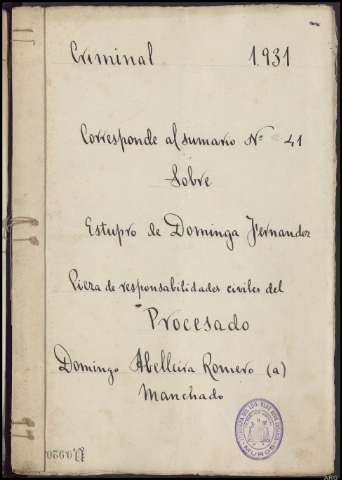 Criminal 1.931
Corresponde al sumario Nº 41
Sobre
Estupro de Dominga Fernandez
Pieza de responsabilidades civiles del
Procesado
Domingo Abelleira Romero (a)
Manchado
MUROS